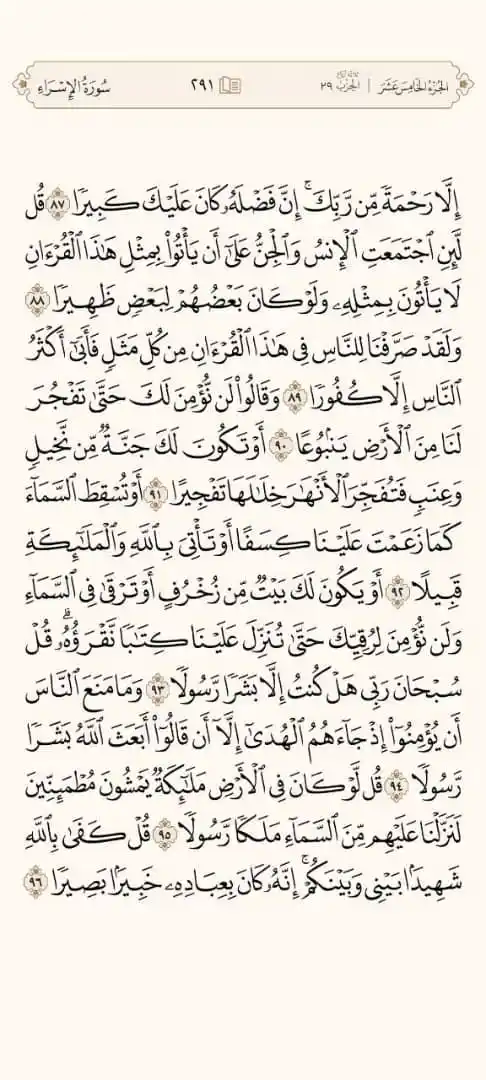 الجزء الخامس عشر | الحزب ٢٩ ٢٩١ سورة الإسراء
إِلَّا رَحْمَةً مِّن رَّبِّكَ ۚ إِنَّ فَضْلَهُۥ كَانَ عَلَيْكَ كَبِيرًا ٨٧ قُل
لَّئِنِ ٱجْتَمَعَتِ ٱلْإِنسُ وَٱلْجِنُّ عَلَىٰٓ أَن يَأْتُوا۟ بِمِثْلِ هَـٰذَا ٱلْقُرْءَانِ
لَا يَأْتُونَ بِمِثْلِهِۦ وَلَوْ كَانَ بَعْضُهُمْ لِبَعْضٍ ظَهِيرًا ٨٨
وَلَقَدْ صَرَّفْنَا لِلنَّاسِ فِى هَـٰذَا ٱلْقُرْءَانِ مِن كُلِّ مَثَلٍ فَأَبَىٰٓ أَكْثَرُ
ٱلنَّاسِ إِلَّا كُفُورًا ٨٩ وَقَالُوا۟ لَن نُّؤْمِنَ لَكَ حَتَّىٰ تَفْجُرَ
لَنَا مِنَ ٱلْأَرْضِ يَنۢبُوعًا ٩٠ أَوْ تَكُونَ لَكَ جَنَّةٌ مِّن نَّخِيلٍ
وَعِنَبٍ فَتُفَجِّرَ ٱلْأَنْهَـٰرَ خِلَـٰلَهَا تَفْجِيرًا ٩١ أَوْ تُسْقِطَ ٱلسَّمَآءَ
كَمَا زَعَمْتَ عَلَيْنَا كِسَفًا أَوْ تَأْتِىَ بِٱللَّهِ وَٱلْمَلَـٰٓئِكَةِ
قَبِيلًا ٩٢ أَوْ يَكُونَ لَكَ بَيْتٌ مِّن زُخْرُفٍ أَوْ تَرْقَىٰ فِى ٱلسَّمَآءِ
وَلَن نُّؤْمِنَ لِرُقِيِّكَ حَتَّىٰ تُنَزِّلَ عَلَيْنَا كِتَـٰبًا نَّقْرَؤُهُۥ ۗ قُلْ
سُبْحَانَ رَبِّى هَلْ كُنتُ إِلَّا بَشَرًا رَّسُولًا ٩٣ وَمَا مَنَعَ ٱلنَّاسَ
أَن يُؤْمِنُوٓا۟ إِذْ جَآءَهُمُ ٱلْهُدَىٰٓ إِلَّآ أَن قَالُوٓا۟ أَبَعَثَ ٱللَّهُ بَشَرًا
رَّسُولًا ٩٤ قُل لَّوْ كَانَ فِى ٱلْأَرْضِ مَلَـٰٓئِكَةٌ يَمْشُونَ مُطْمَئِنِّينَ
لَنَزَّلْنَا عَلَيْهِم مِّنَ ٱلسَّمَآءِ مَلَكًا رَّسُولًا ٩٥ قُلْ كَفَىٰ بِٱللَّهِ
شَهِيدًۢا بَيْنِى وَبَيْنَكُمْ ۚ إِنَّهُۥ كَانَ بِعِبَادِهِۦ خَبِيرًۢا بَصِيرًا ٩٦